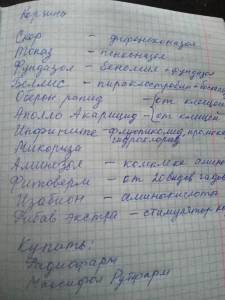 Корзина
Скор - дифеноконазол
Топаз - пенконазол
Фундазол - беномил + фундазол
Беллис - пираклостробин +
Оберон рапид - от клещей
Аполло Акарицид - от клещей
Инфинито - флуопиколид, пропамо
гидрохлорид
Микориза
Аминозол - комплекс амино
Фитоверм - от 20 видов гадов
Изабион - аминокислота
Рибав экстра - стимулятор ко
Купить:
Радиофарм
Максифол Рутфарм